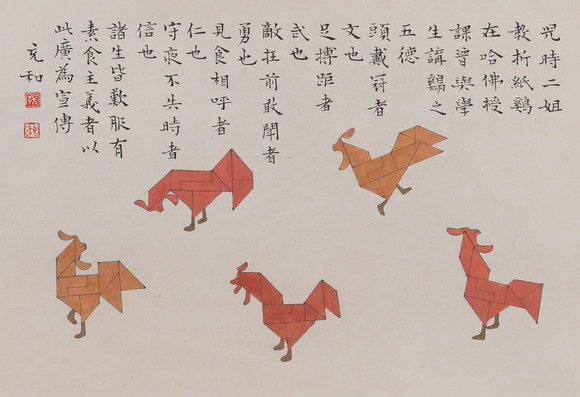 兒時二姐
教折紙鷄
在哈佛授
課曾與學
生講鷄之
五德
頭戴冠者
文也
足搏距者
武也
敵在前敢鬥者
勇也
見食相呼者
仁也
守夜不失時者
信也
諸生皆歎服有
素食主義者以
此廣為宣傳
充和